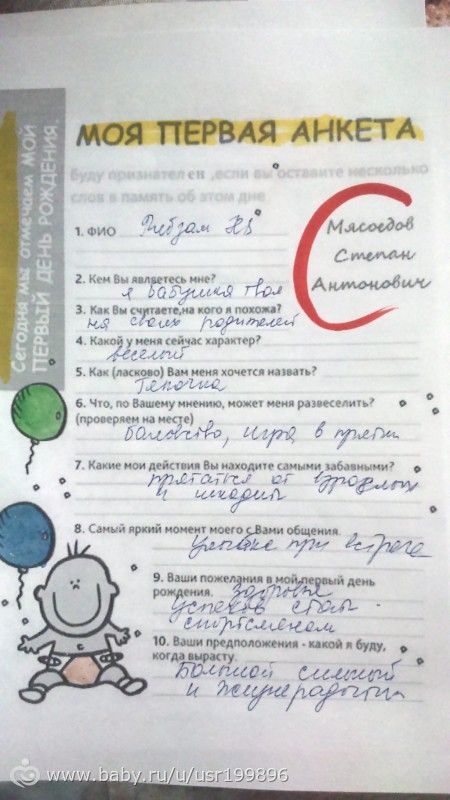 Сегодня мы отмечаем МОЙ
ПЕРВЫЙ ДЕНЬ РОЖДЕНИЯ
МОЯ ПЕРВАЯ АНКЕТА
буду признателен ,если вы оставите несколько
слов в память об этом дне
Мясоедов
Степан
Антонович
1. ФИО
2. Кем Вы являетесь мне?
я бабушка твоя
3. Как Вы считаете,на кого я похожа?
на своих родителей
4. Какой у меня сейчас характер?
веселый
5. Как (ласково) Вам меня хочется назвать?
Тёпочка
6. Что, по Вашему мнению, может меня развеселить?
(проверяем на месте)
баловство, игра в прятки
7. Какие мои действия Вы находите самыми забавными?
прятаться от взрослых
и шкодить
8. Самый яркий момент моего с Вами общения.
Улыбка при встрече
9. Ваши пожелания в мой первый день
рождения. Здоровья
успехов стать
спортсменом
10. Ваши предположения - какой я буду,
когда вырасту.
Большой сильный
и жизнерадостный
www.baby.ru/u/usr199896